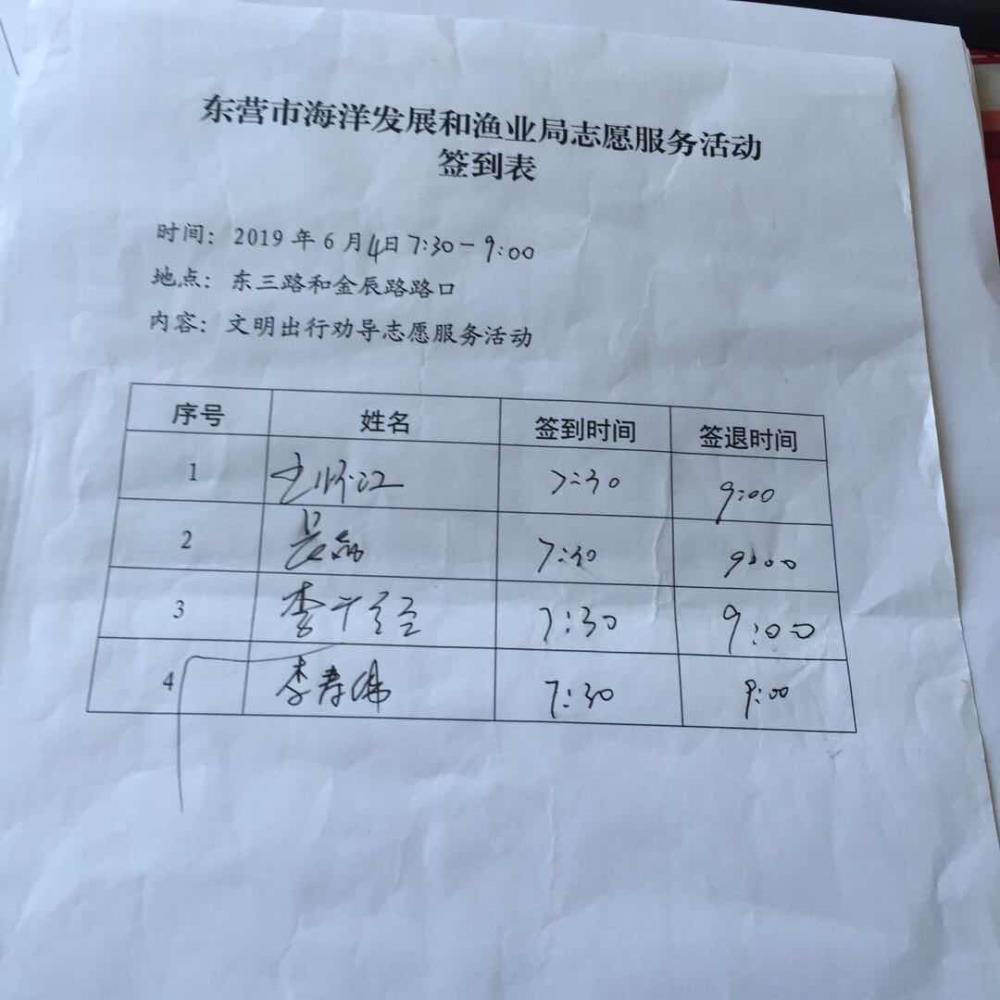 东营市海洋发展和渔业局志愿服务活动
签到表
时间：2019年6月4日7:30-9:00
地点：东三路和金辰路路口
内容：文明出行劝导志愿服务活动
序号 姓名 签到时间 签退时间
1 7:30 9:00
2 7:30 9:00
3 李 7:30 9:00
4 李寿 7:30 9:00